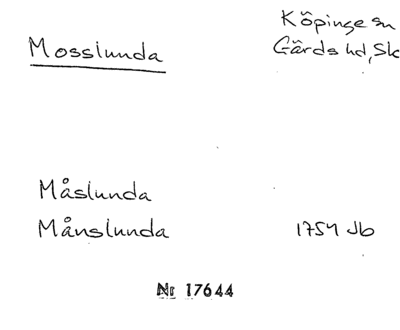 Köpinge sn
Mosslunda
Gärds hd, Sk
Måslunda
Månslunda 1754 Jb
Nr 17644